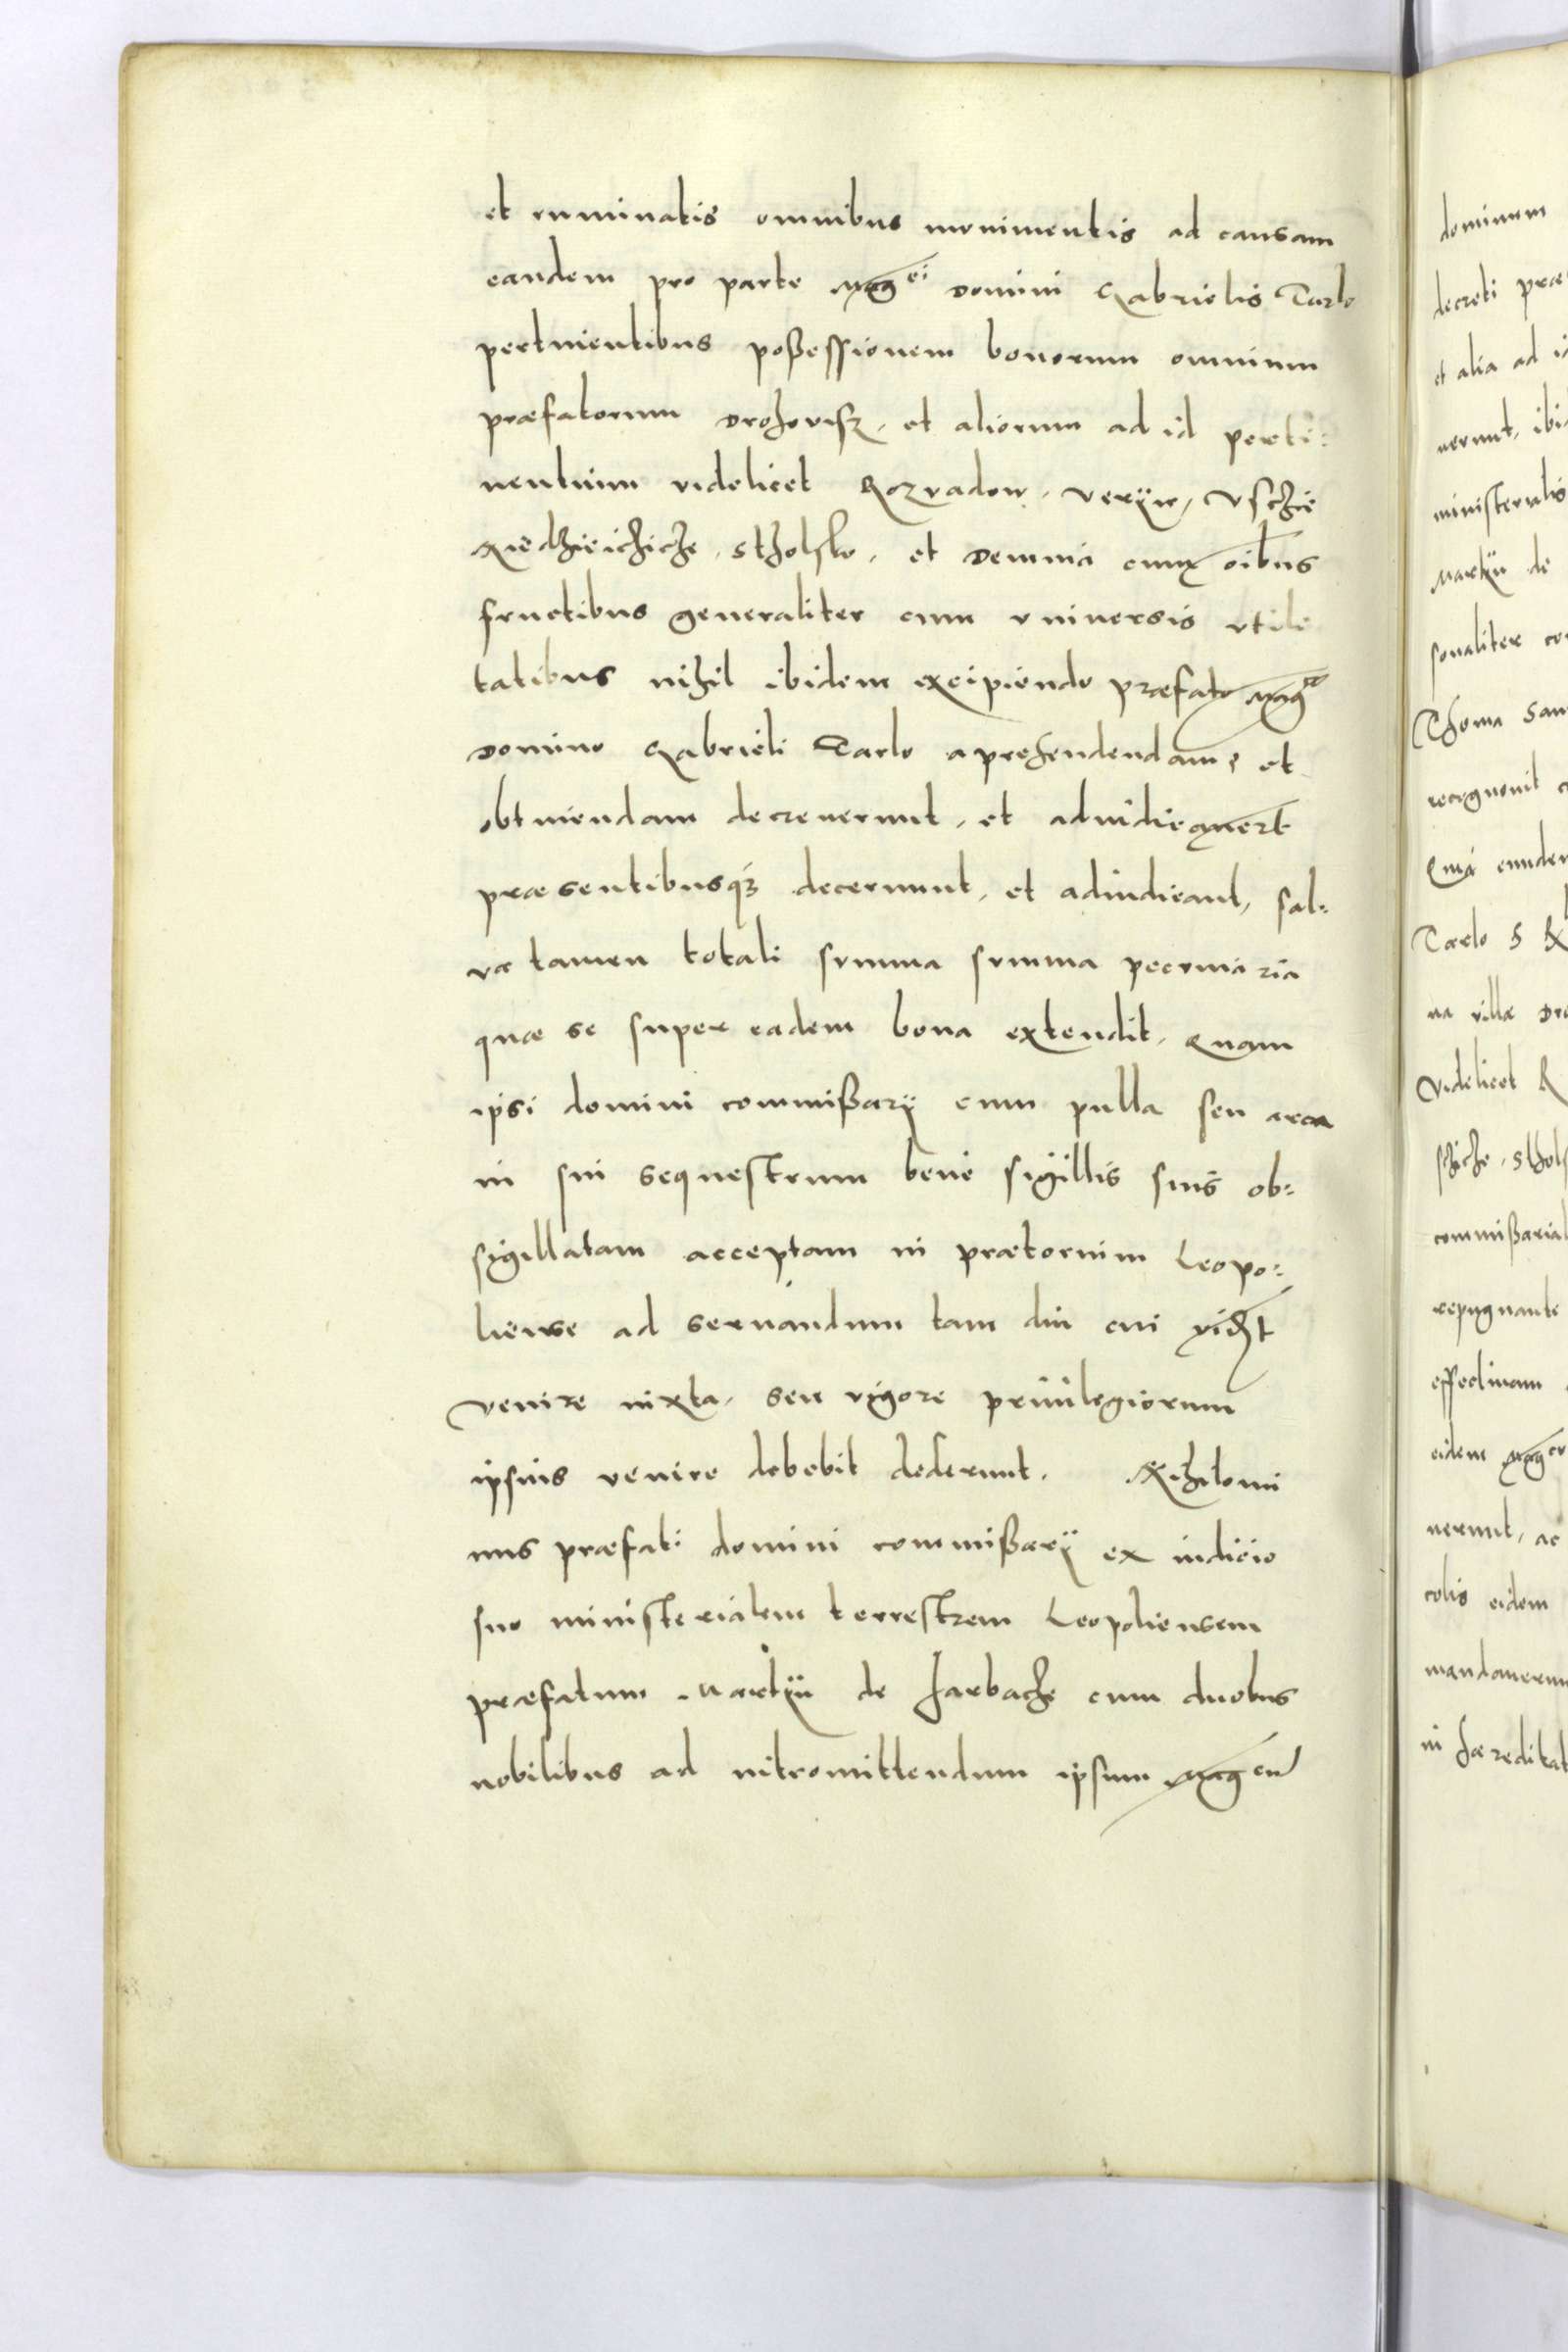 et ruminatis omnibus monimentis ad causam
eandem pro parte Mag ci domini Gabrielis Tarlo
pertinentibus poßessionem bonorum omnium
præfatorum Drohovisz, et aliorum ad id perti:
nentium videlicet Rozvadow, Veryn, Uschie
Niedhieichiche, Stholsko, et Demnia cum oibus
fructibus generaliter cum vniuersis vtili
tatibus nihil ibidem excipiendo præfato Mag co
Domino Gabrieli Tarlo aprehendendam, et
obtinendam decreuerunt, et adiudicauert
præsentibusqз decernunt, et adiudicant, sal:
va tamen totali summa summa pecuniaria
quæ se super eadem bona extendit, Quam
ipsi domini commißarij cum pulla seu arca
in sui sequestrum bene sigillis suis ob:
sigillatam acceptam in prætorium Leopo:
liense ad seruandum tam diu cui
venire iuxta, seu vigore priuilegiorum
ipsius venire debebit dederunt. Nihilomi
nus præfati domini commißarij ex iudicio
suo ministerialem terrestrem Leopoliensem
præfatum Martyn de Harbache cum duobus
nobilibus ad intromittendum ipsum Mag cum
dominum
decreti præ
et alia ad i
uerunt, ibi
ministerialis
Martyn de
sonaliter co
Thoma San
recognouit c
Quia eundem
Tarlo S R
na villæ Dro
Videlicet R
schiche, Sthols
commißarial
repugnante
effectiuam
eidem Mag co
uerunt, ac
colis eidem
mandauerun
in hæreditat